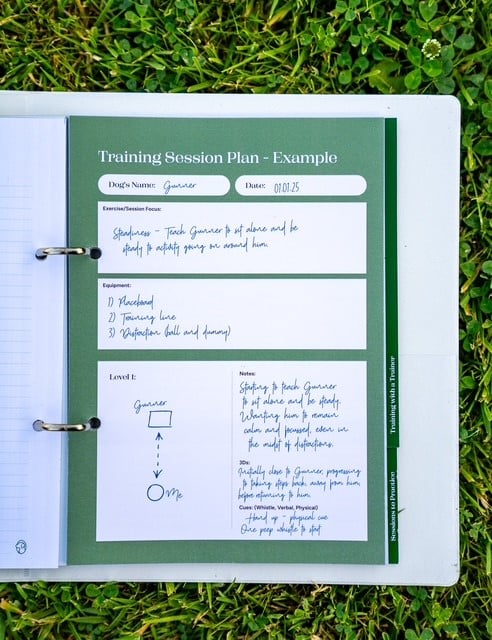 Training Session Plan - Example
Dog's Name: Gunner
Date: 01.01.25
Exercise/Session Focus:
Steadiness - Teach Gunner to sit alone and be
steady to activity going on around him.
Equipment:
1) Placeboard
2) Training line
3) Distraction (ball and dummy)
Level 1:
Gunner
Me
Notes:
Starting to teach Gunner
to sit alone and be steady.
Wanting him to remain
calm and focussed, even in
the midst of distractions.
3Ds:
Initially close to Gunner, progressing
to taking steps back, away from him,
before returning to him.
Cues: (Whistle, Verbal, Physical)
Hand up - physical cue
One peep whistle to start
Training with a Trainer
Sessions to Practice